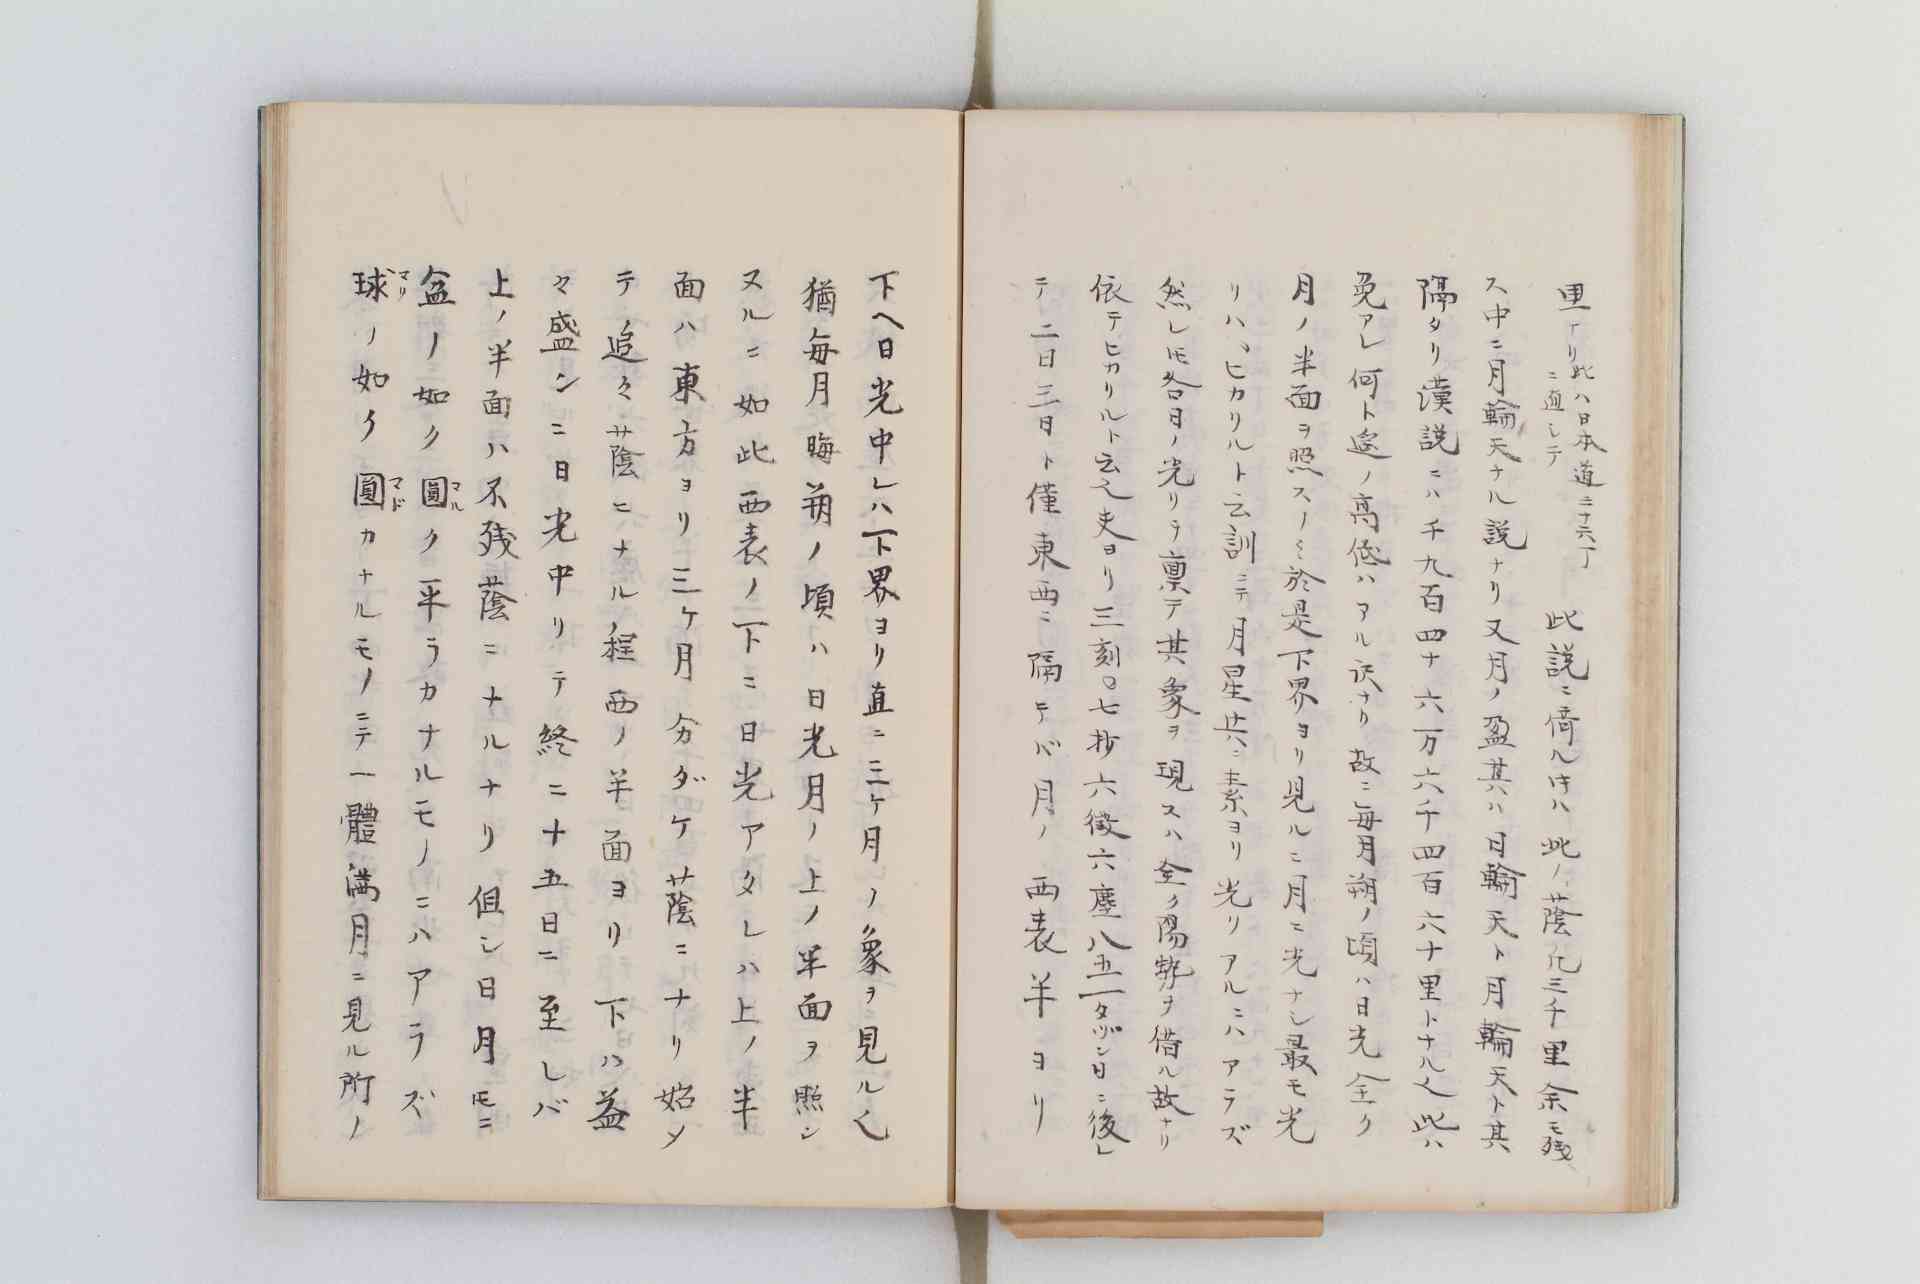 里ナリ此ハ日本道三十六丁
ニ直シテ
此説ニ倚ル時ハ此ノ蔭凡三千里余モ残
ス中ニ月輪天ナル説ナリ又月ノ盈其ハ日輪天ト月輪天ト其
隔タリ漢説ニハ千九百四十六万六千四百六十里トナル也此ハ
兎アレ何ト遠ノ高低ハアル訳ナリ故ニ毎月朔ノ頃ハ日光全ク
月ノ半面ヲ照スノミ於是下界ヨリ見ルニ月ニ光ナシ最モ光
リハヒカリルト云訓ニテ月星共ニ素ヨリ光リアルニハアラズ
然レ𪜈各日ノ光リヲ稟テ其象ヲ現スハ全ク陽勢ヲ借ル故ナリ
依テヒカリルト云也夫ヨリ三刻〇七抄六微六塵八五一タヅン日ニ後レ
テ二日三日ト僅東西ニ隔テバ月ノ西表半ヨリ
下ヘ日光中レハ下界ヨリ直ニ三ケ月ノ象ヲ見ル也
猶毎月晦朔ノ頃ハ日光月ノ上ノ半面ヲ照シ
ヌルニ如此西表ノ下ニ日光アタレハ上ノ半
面ハ東方ヨリ三ケ月分ダケ蔭ニナリ始メ
テ追々蔭ヒナルノ程西ノ半面ヨリ下ハ益
々盛ンニ日光中リテ終ニ十五日ニ至レバ
上ノ半面ハ不残蔭ニナルナリ但シ日月𪜈ニ
盆ノ如ク圓マルク平ラカナルモノニハアラズ
球マリノ如ク圓マドカナルモノニテ一體満月ニ見ル所ノ